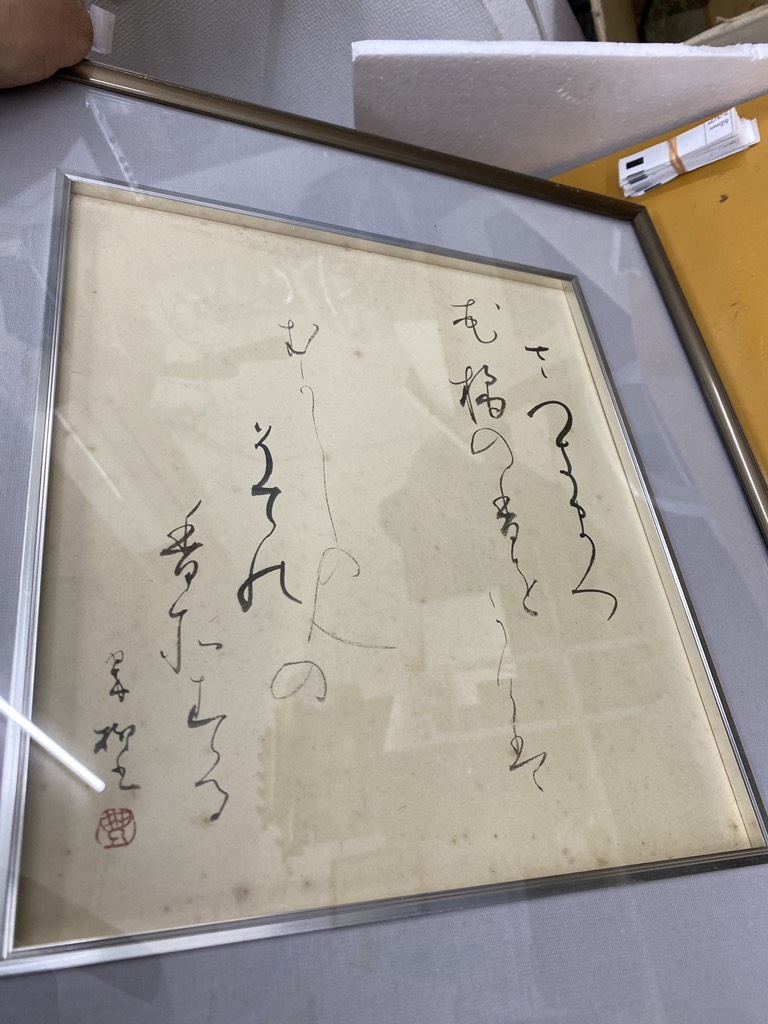 さつきまつ
花橘の香を
かけは
むかしの人
そての
香そする
62mm